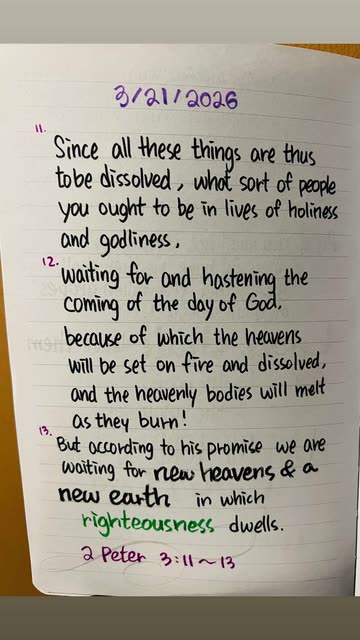 3/21/2026
11.
Since all these things are thus
to be dissolved, what sort of people
you ought to be in lives of holiness
and godliness,
12.
waiting for and hastening the
coming of the day of God,
because of which the heavens
will be set on fire and dissolved,
and the heavenly bodies will melt
as they burn!
13.
But according to his promise we are
waiting for new heavens & a
new earth in which
righteousness dwells.
2 Peter 3:11~13